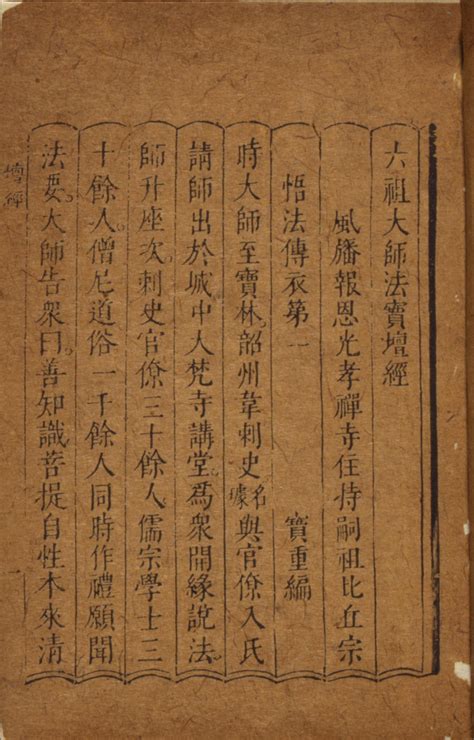 六祖大師法寶壇經
風旛報恩光孝禪寺住持嗣祖比丘宗
寶重編
悟法傳衣第一
時大師至寶林。韶州韋刺史名璩與官僚入氏
請師出於城中大梵寺講堂。爲衆開緣說法。
師升座次。刺史官僚三十餘人儒宗學士三
十餘人。僧尼道俗一千餘人同時作禮願聞
法要。大師告衆曰。善知識菩提自性本來清
壇經